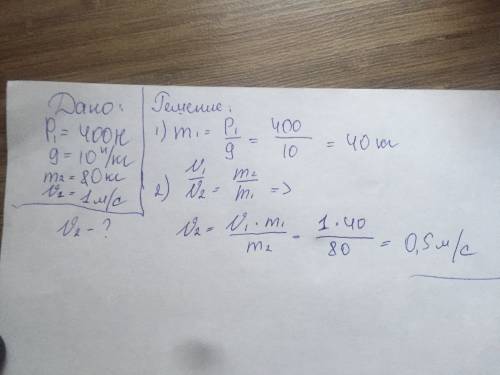 Дано:
P₁ = 400н
g = 10 н/кг
m₂ = 80 кг
v₂ = 1 м/с
v₂ - ?
Решение:
1) m₁ = P₁/g = 400/10 = 40 кг
2) v₁/v₂ = m₂/m₁ =>
v₂ = v₁·m₁/m₂ = 1·40/80 = 0,5 м/с